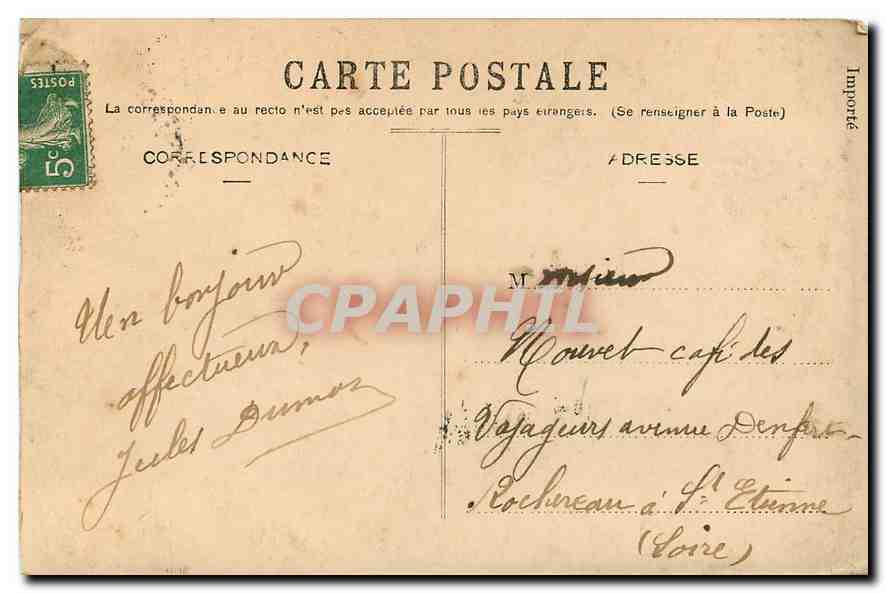 CARTE POSTALE
La correspondance au recto n'est pas acceptée par tous les pays étrangers. (Se renseigner à la Poste)
CORRESPONDANCE
ADRESSE
Importé
POSTES
5c
Un bonjour
affectueux,
Jules Dumas
Monsieur
Nouvet café des
Voyageurs avenue Denfert-
Rochereau à St Etienne
(Loire)
CPAPHIL